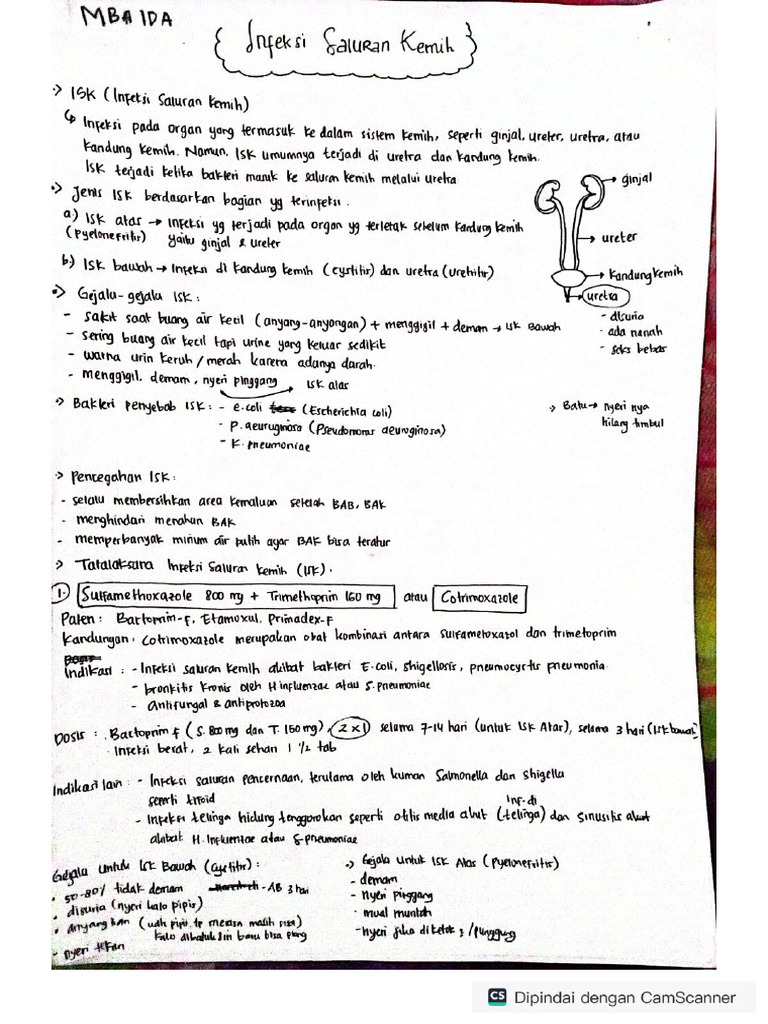 MBA IDA
{ Infeksi Saluran Kemih }
-> ISK (Infeksi Saluran Kemih)
↳ Infeksi pada organ yang termasuk ke dalam sistem kemih, seperti ginjal, ureter, uretra, atau
kandung kemih. Namun, ISK umumnya terjadi di uretra dan kandung kemih.
ISK terjadi ketika bakteri masuk ke saluran kemih melalui uretra
-> Jenis ISK berdasarkan bagian yg terinfeksi :
a) ISK atas → infeksi yg terjadi pada organ yg terletak sebelum kandung kemih
(Pyelonefritis) yaitu ginjal & ureter
b) ISK bawah → infeksi di kandung kemih (cystitis) dan uretra (urethritis)
ginjal
ureter
kandung kemih
uretra
- disuria
- ada nanah
- seks bebas
-> Gejala-gejala ISK :
- sakit saat buang air kecil (anyang-anyongan) + menggigil + demam → ISK Bawah
- sering buang air kecil tapi urine yang keluar sedikit
- warna urin keruh / merah karena adanya darah.
- menggigil, demam, nyeri pinggang ISK atas
-> Bakteri penyebab ISK : - e.coli (Escherichia coli)
- P. aeruginosa (Pseudomonas aeuroginosa)
- K. pneumoniae
-> Batu → nyeri nya
hilang timbul
-> Pencegahan ISK :
- selalu membersihkan area kemaluan setelah BAB, BAK
- menghindari menahan BAK
- memperbanyak minum air putih agar BAK bisa teratur
-> Tatalaksana Infeksi Saluran Kemih (ISK).
1. Sulfamethoxazole 800 mg + Trimethoprim 160 mg atau Cotrimoxazole
Paten : Bactoprim-F, Etamoxul, Primadex-F
Kandungan : Cotrimoxazole merupakan obat kombinasi antara sulfametoxazol dan trimetoprim
Indikasi : - Infeksi saluran kemih akibat bakteri E.coli, shigellosis, pneumocystis pneumonia.
- bronkitis kronis oleh H influenzae atau S. pneumoniae
- Antifungal & antiprotozoa
Dosis : . Bactoprim f (S. 800 mg dan T. 160 mg), 2 x 1 selama 7-14 hari (untuk ISK Atas), selama 3 hari (ISK bawah)
. Infeksi berat, 2 kali sehari 1 1/2 tab
Indikasi lain : - Infeksi saluran pencernaan, terutama oleh kuman Salmonella dan shigella
seperti tifoid
- Infeksi telinga hidung tenggorokan seperti otitis media akut (inf. di telinga) dan sinusitis akut
akibat H. Influenzae atau S. pneumoniae
Gejala untuk ISK Bawah (cystitis) :
. 50-80% tidak demam - AB 3 hari
. disuria (nyeri kalo pipis)
. anyang²an (udh pipis, tp merasa masih sisa)
- nyeri tekan
-> Gejala untuk ISK Atas (Pyelonefritis)
- demam
- nyeri pinggang
- mual muntah
- nyeri jika diketok² / punggung
CS Dipindai dengan CamScanner